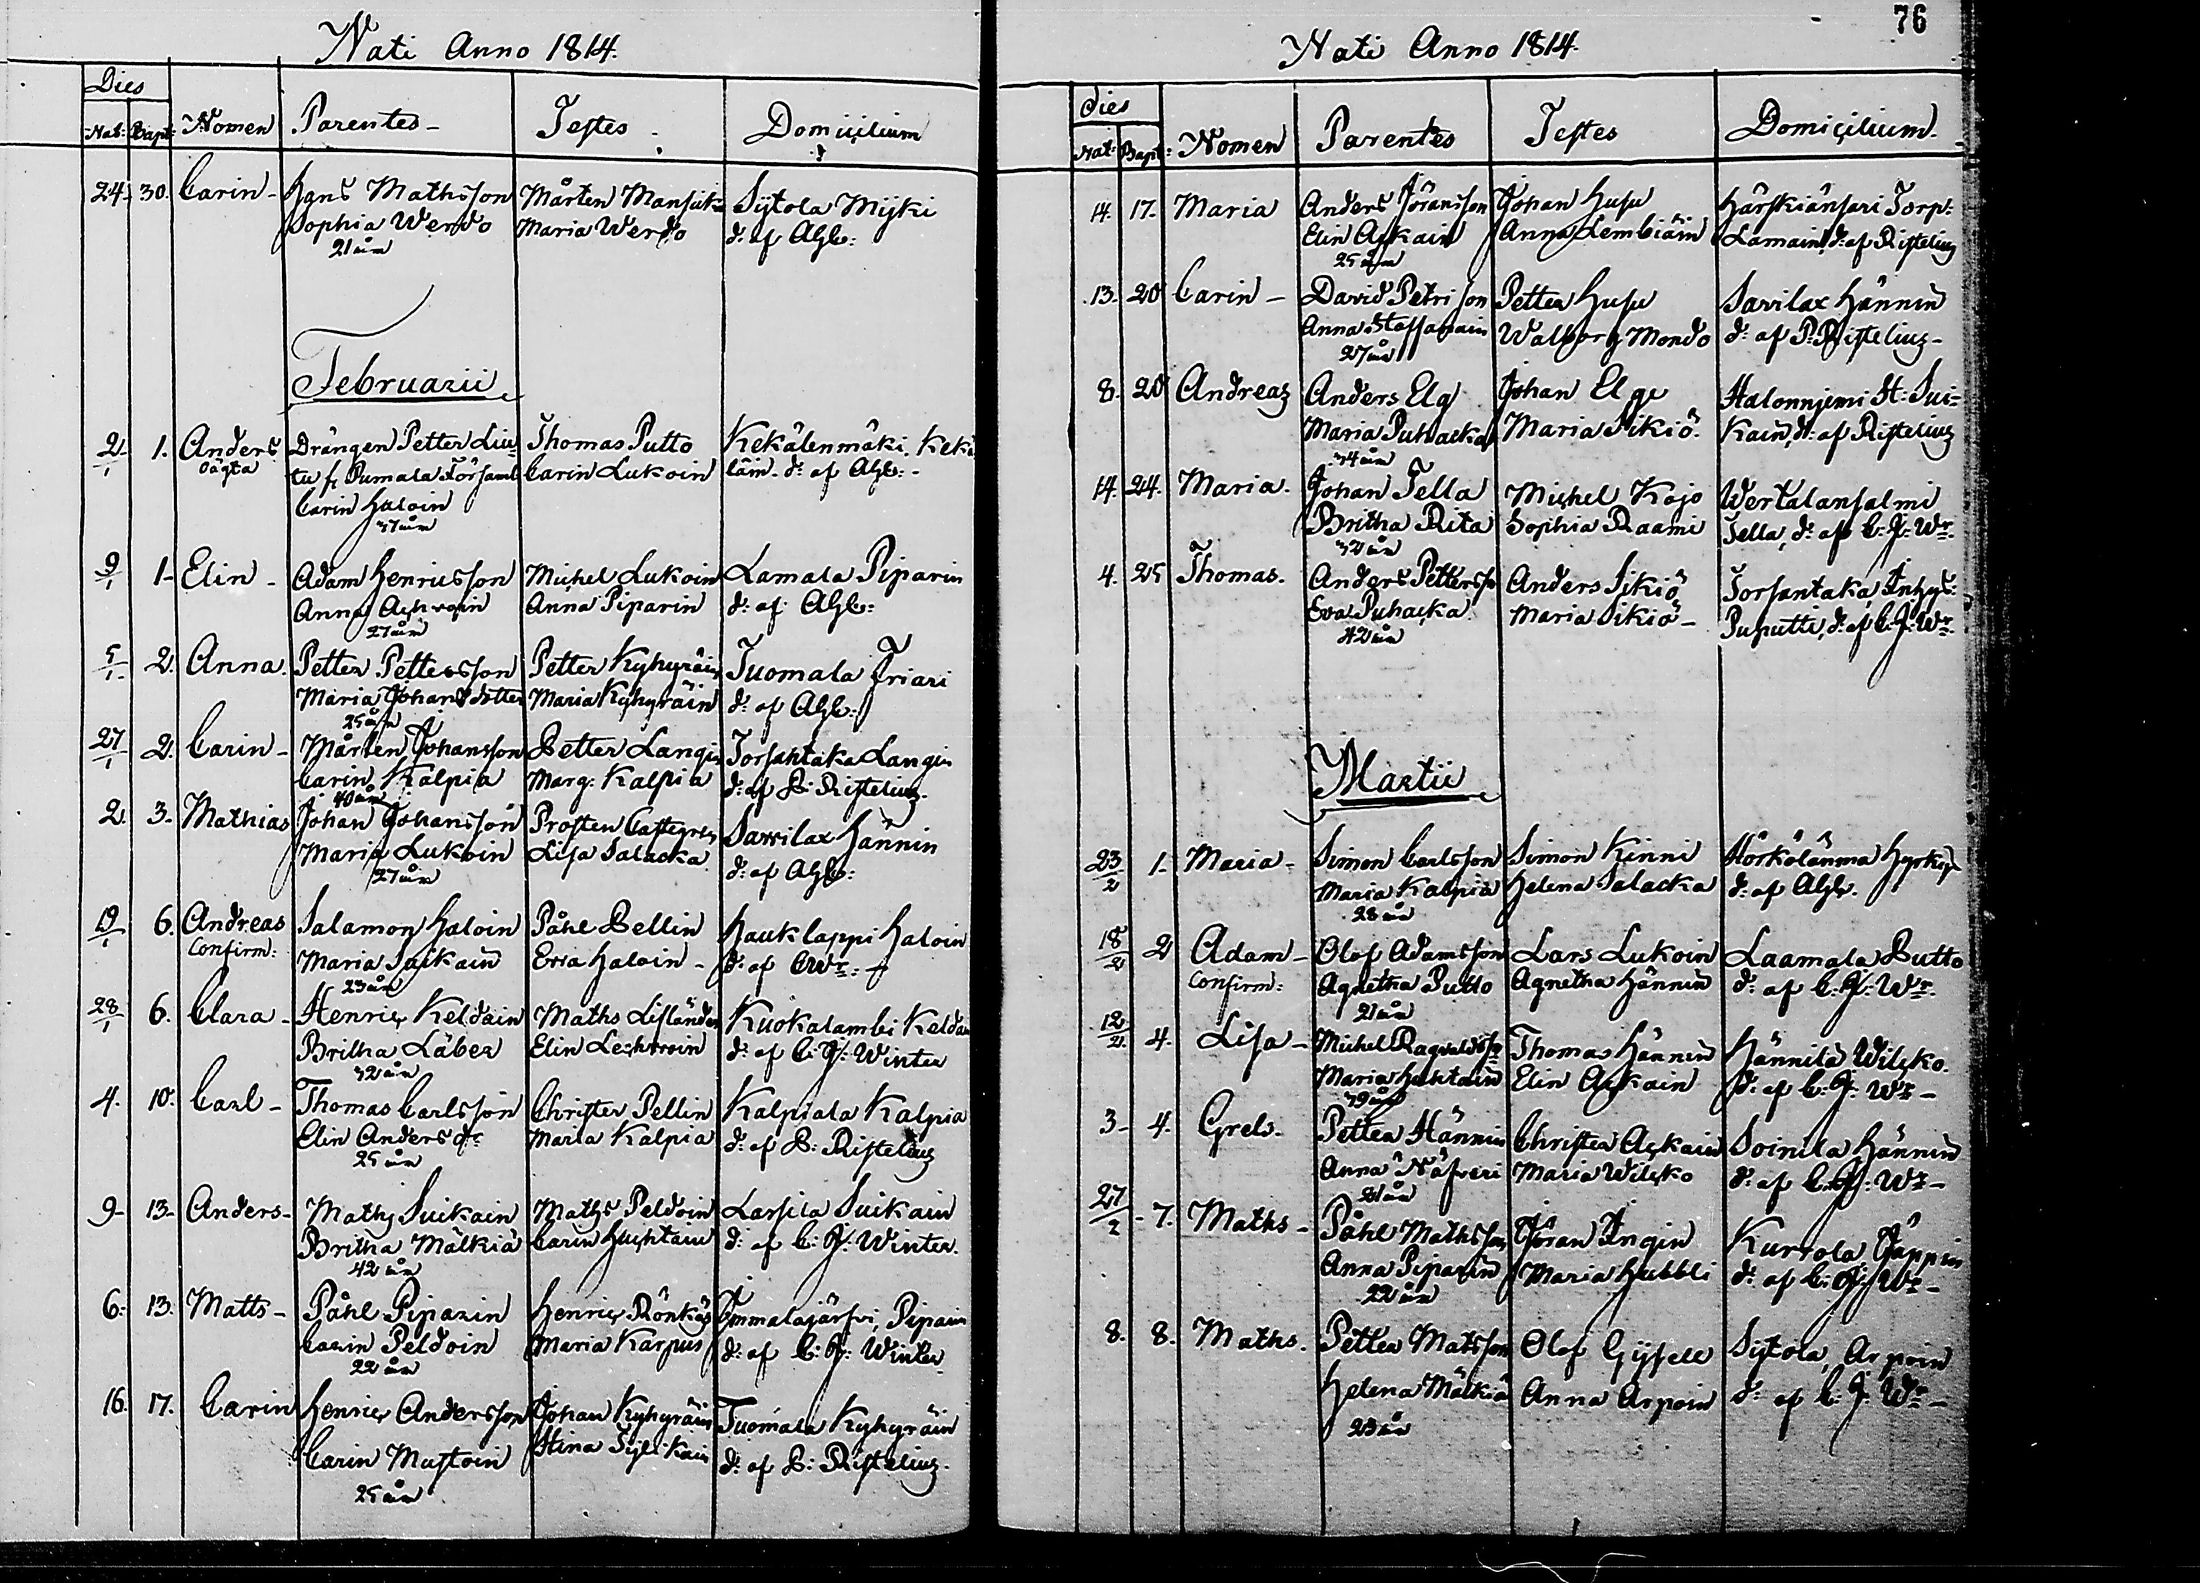 Nati Anno 1814.
Dies
Nat: Bapt: Nomen Parentes- Testes Domicilium
24 30. Carin- Hans Mathsson Mårten Mansik Sytola Myki
Sophia Werdo Maria Werdo d: af
21 år
Februarii
2/1 1. Anders Drängen Petter Liu= Thomas Putto Kekälenmäki, Kekä
oägta tu fr Pumala Församl Carin Lukoin läin d: af
Carin Haloin
37 år
9/1 1- Elin- Adam Henricsson Michel Lukoin Lamala Piparin
Anna Anna Piparin d: af
27 år
5/1 2. Anna. Petter Pettersson Petter Kyhyräin Tuomala Friari
Maria Johansdotter Maria Kyhyräin d: af
25 år
27/1 2. Carin- Mårten Johansson Petter Langin Torsantaka Langin
Carin Kalpia Marg: Kalpia d: af P: Ristelius
40 år
2 3- Mathias Johan Johansson Prosten Castegren Sarvilax Hännin
Maria Lukoin Lisa Salacka d: af
27 år
19/1 6. Andreas Salamon Haloin Påhl Pellin Hauklappi Haloin
Confirm: Maria Suikain Eva Haloin- d: af
23 år
28/1 6. Clara- Henric Keldain Maths Lifländer Kuokalambi Keldain
Britha Läber Elin d: af C: J: Winter
32 år
4. 10. Carl- Thomas Carlsson Christer Pellin Kalpiala Kalpia
Elin Andersdr Maria Kalpia d: af P: Ristelius
25 år
9- 13- Anders- Maths Suikain Maths Peldoin Larsila Suikain
Britha Mälkiä Carin Huchtain d: af C: J: Winter.
42 år
6. 13. Matts- Påhl Piparin Henric Rönkäs Immalajärfvi, Piparin
Carin Peldoin Maria Karpus d: af C: J: Winter
22 år
16. 17. Carin Henric Andersson Johan Kyhyräin Tuomala Kyhyräin
Carin Mustoin Stina d: af P: Ristelius.
25 år
76
Nati Anno 1814.
Dies
Nat: Bapt: Nomen Parentes Testes Domicilium
14. 17- Maria Anders Jöransson Johan Husu Härskiänsari Torp:
Elin Ackain Anna Lembiäin Lamain, d: af Ristelius
25 år
13. 20 Carin- David Petrisson Petter Husu Sarvilax Hännin
Anna Staffanain Walborg Mondo d: af P: Ristelius-
27 år
8. 20 Andreas Anders Elg Johan Elg Halonnjemi St: Sui=
Maria Puhacka Maria Sikiö. kain, d: af Ristelius
34 år
14. 24. Maria. Johan Tella Michel Kojo Wertalansalmi
Britha Rita Sophia Raami Tella, d: af C: J: Wr-
32 år
4. 25 Thomas. Anders Pettersson Anders Sikiö Torsantaka Inhys:
Eva Puhacka Maria Sikiö- Puputti, d: af C: J: Wr-
42 år
Martii
23/2 1- Maria- Simon Carlsson Simon Kinni Hörkölänma
Maria Kalpia Helena Salacka d: af
28 år
18/2 2 Adam- Olof Adamsson Lars Lukoin Laamala Putto
Confirm: Agnetha Putto Agnetha Hännin d: af C: J: Wr-
21 år
12/2 4. Lisa- Michel Ragvaldsson Thomas Hännin Hännilä Wilcko.
Maria Huhtain Elin Ackain d: af C: J: Wr-
39 år
3- 4. Grels- Petter Hännin Christer Ackain Soinila Hännin
Anna Näfveri Maria Wilcko d: af C: J: Wr-
21 år
27/2 - 7. Maths- Påhl Mathsson Jöran Ingin Kurrola Jäppin
Anna Piparin Maria Hubbli d: af C: J: Wr-
22 år
8. 8. Maths. Petter Matsson Olof Sytola, Arpoin
Helena Mälkiä Anna Arpoin d: af C: J: Wr-
23 år